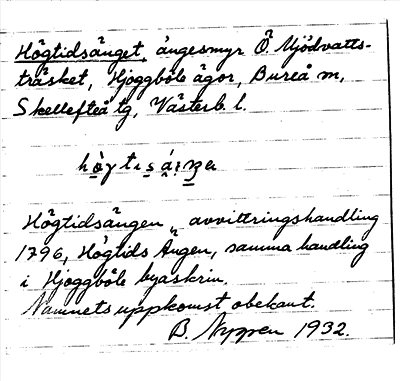 Högtidsänget, ängesmyr Ö. Mjödvatts-
träsket, Hjoggböle ägor, Bureå m,
Skellefteå tg, Västerb. l.
Högtidsängen, avvittringshandling
1796, Högtids Ängen, samma handling
i Hjoggböle byaskrin.
Namnets uppkomst obekant.
B. 1932.